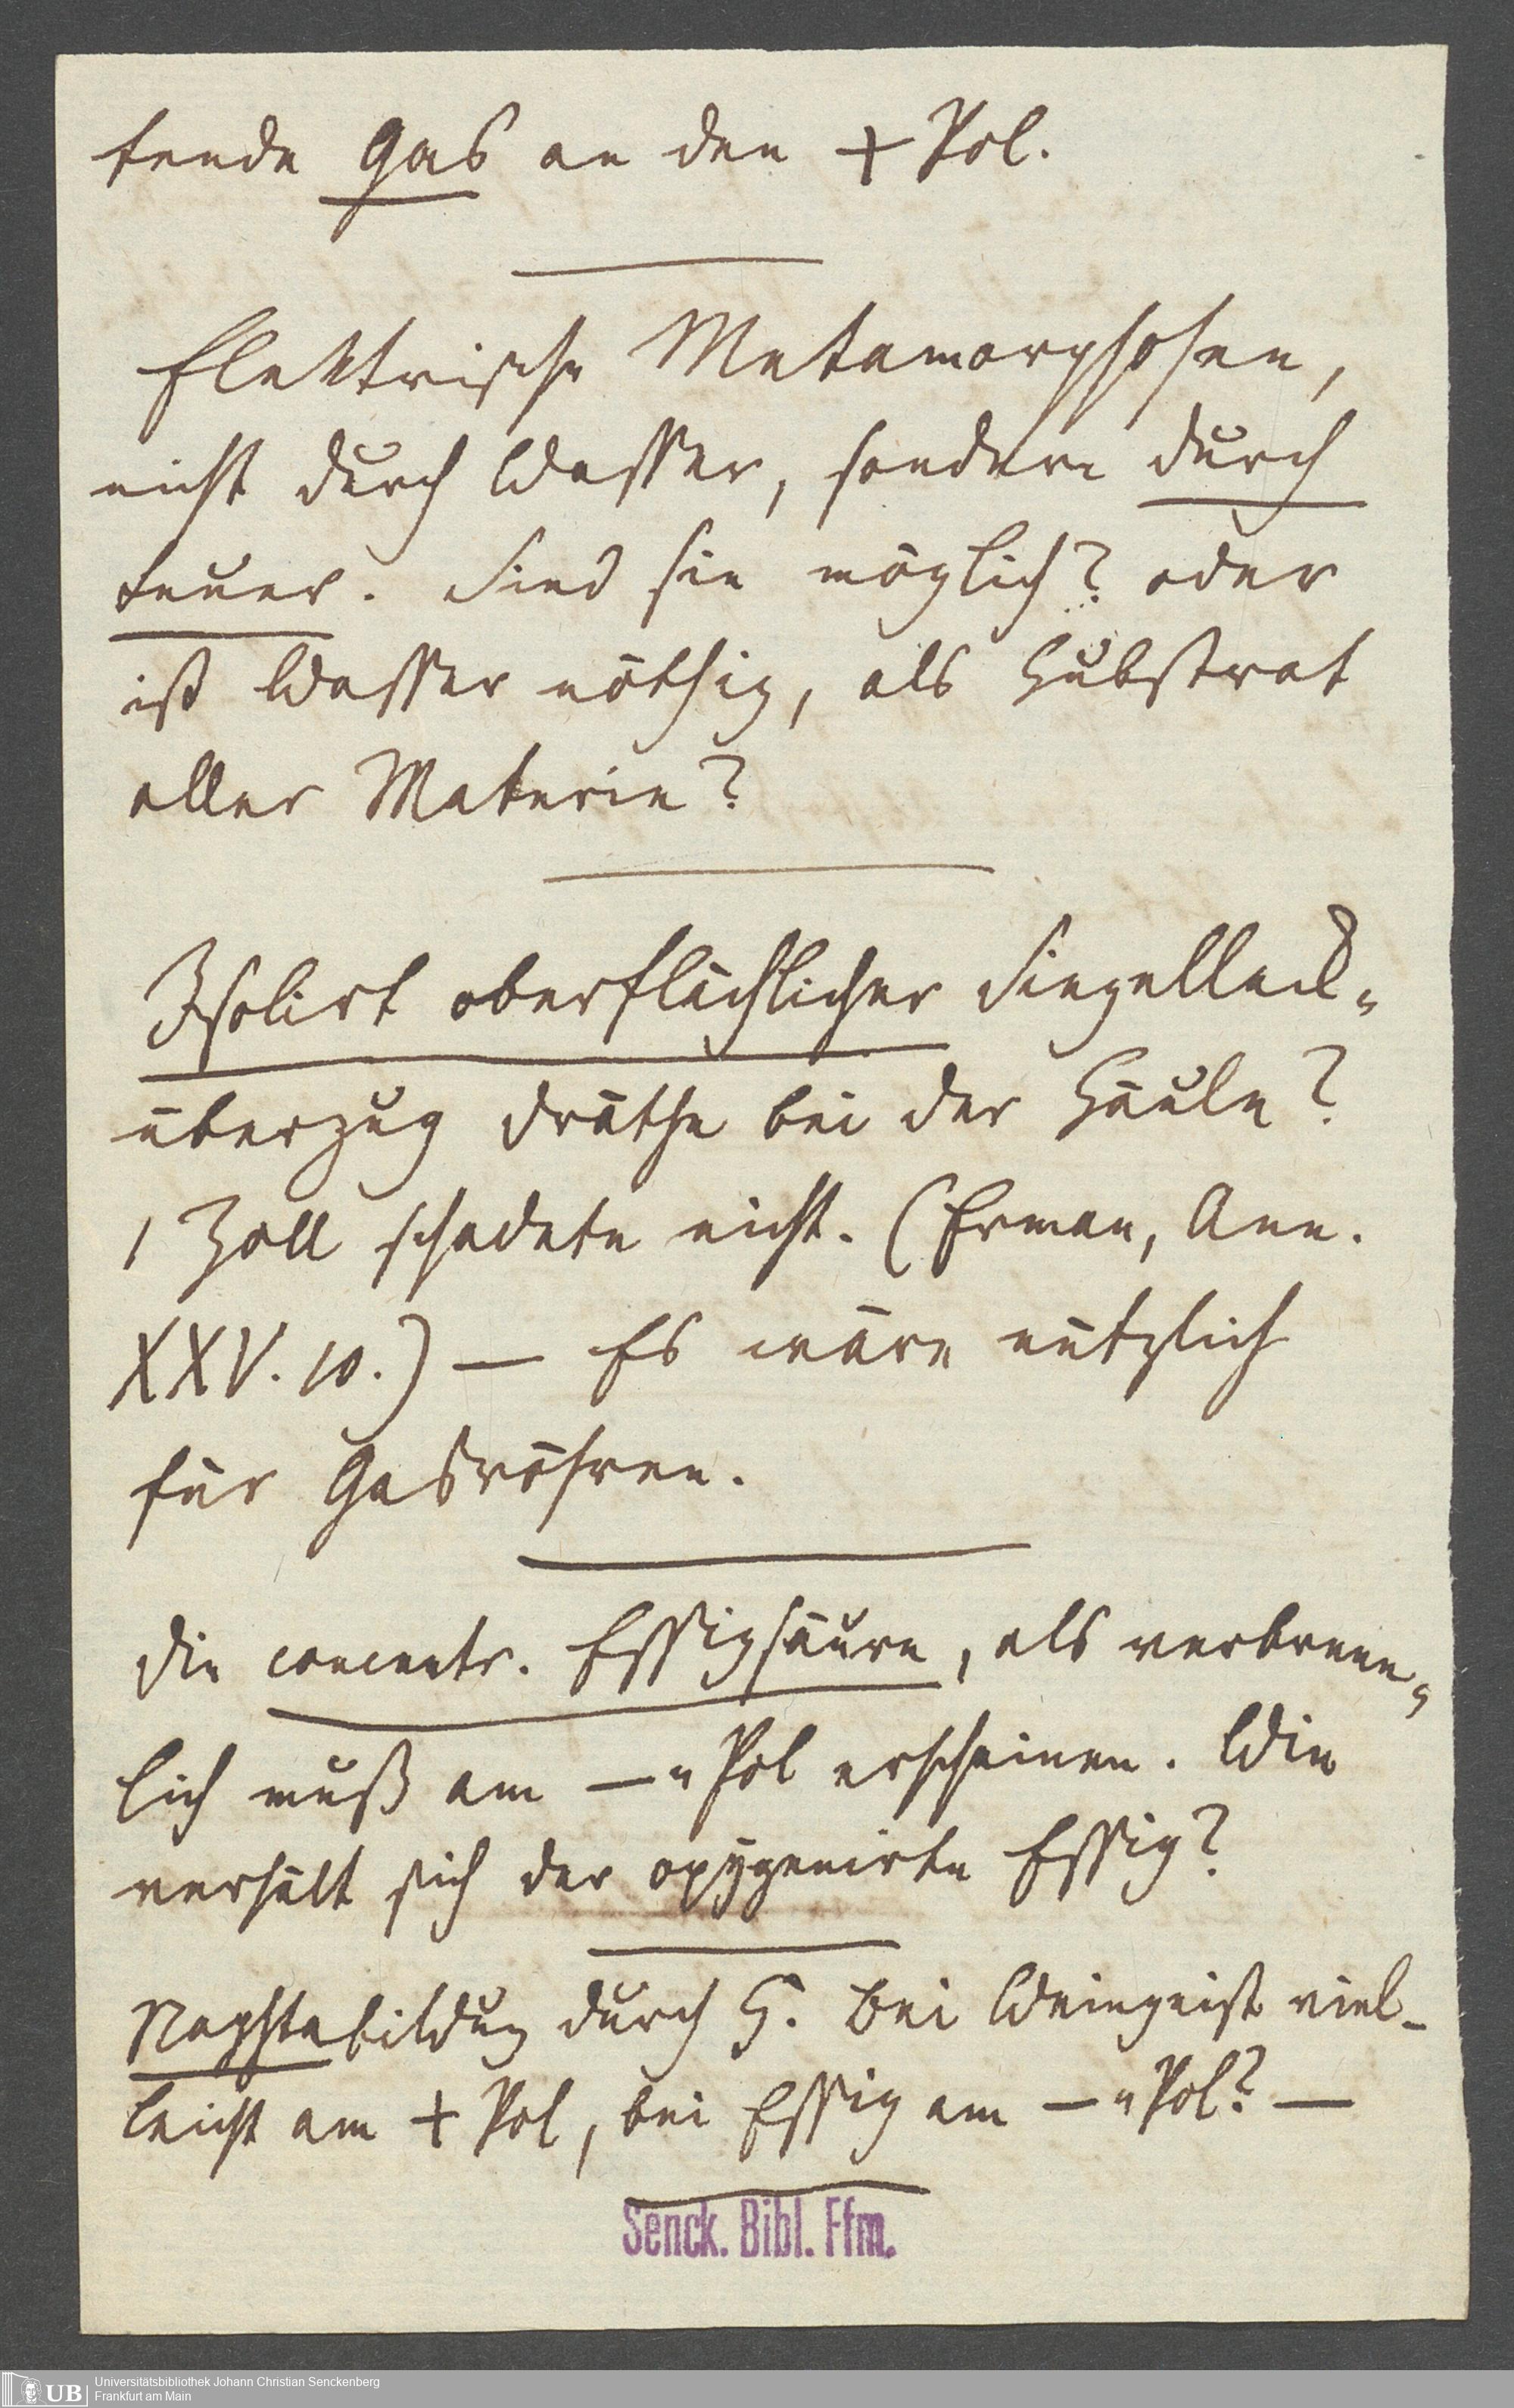 tende Gas an den + Pol.
Elektrische Metamorphosen,
nicht durch Wasser, sondern durch
Feuer. Sind sie möglich? oder
ist Wasser nöthig, als Substrat
aller Materie?
Isolirt oberflächlicher Siegellack-
überzug Dräthe bei der Säule?
1 Zoll schadete nicht. (Erman, Ann.
XXV. 10.) — Es wäre nützlich
für Gasröhren.
Die concentr. Essigsäure, als verbrenn-
lich muß am —n Pol erscheinen. Wie
verhält sich der oxygenirte Essig?
Naphtabildung durch S. Bei Weingeist viel-
leicht am + Pol, bei Essig am —n Pol? —
Senck. Bibl. Ffm.
UB
Universitätsbibliothek Johann Christian Senckenberg
Frankfurt am Main